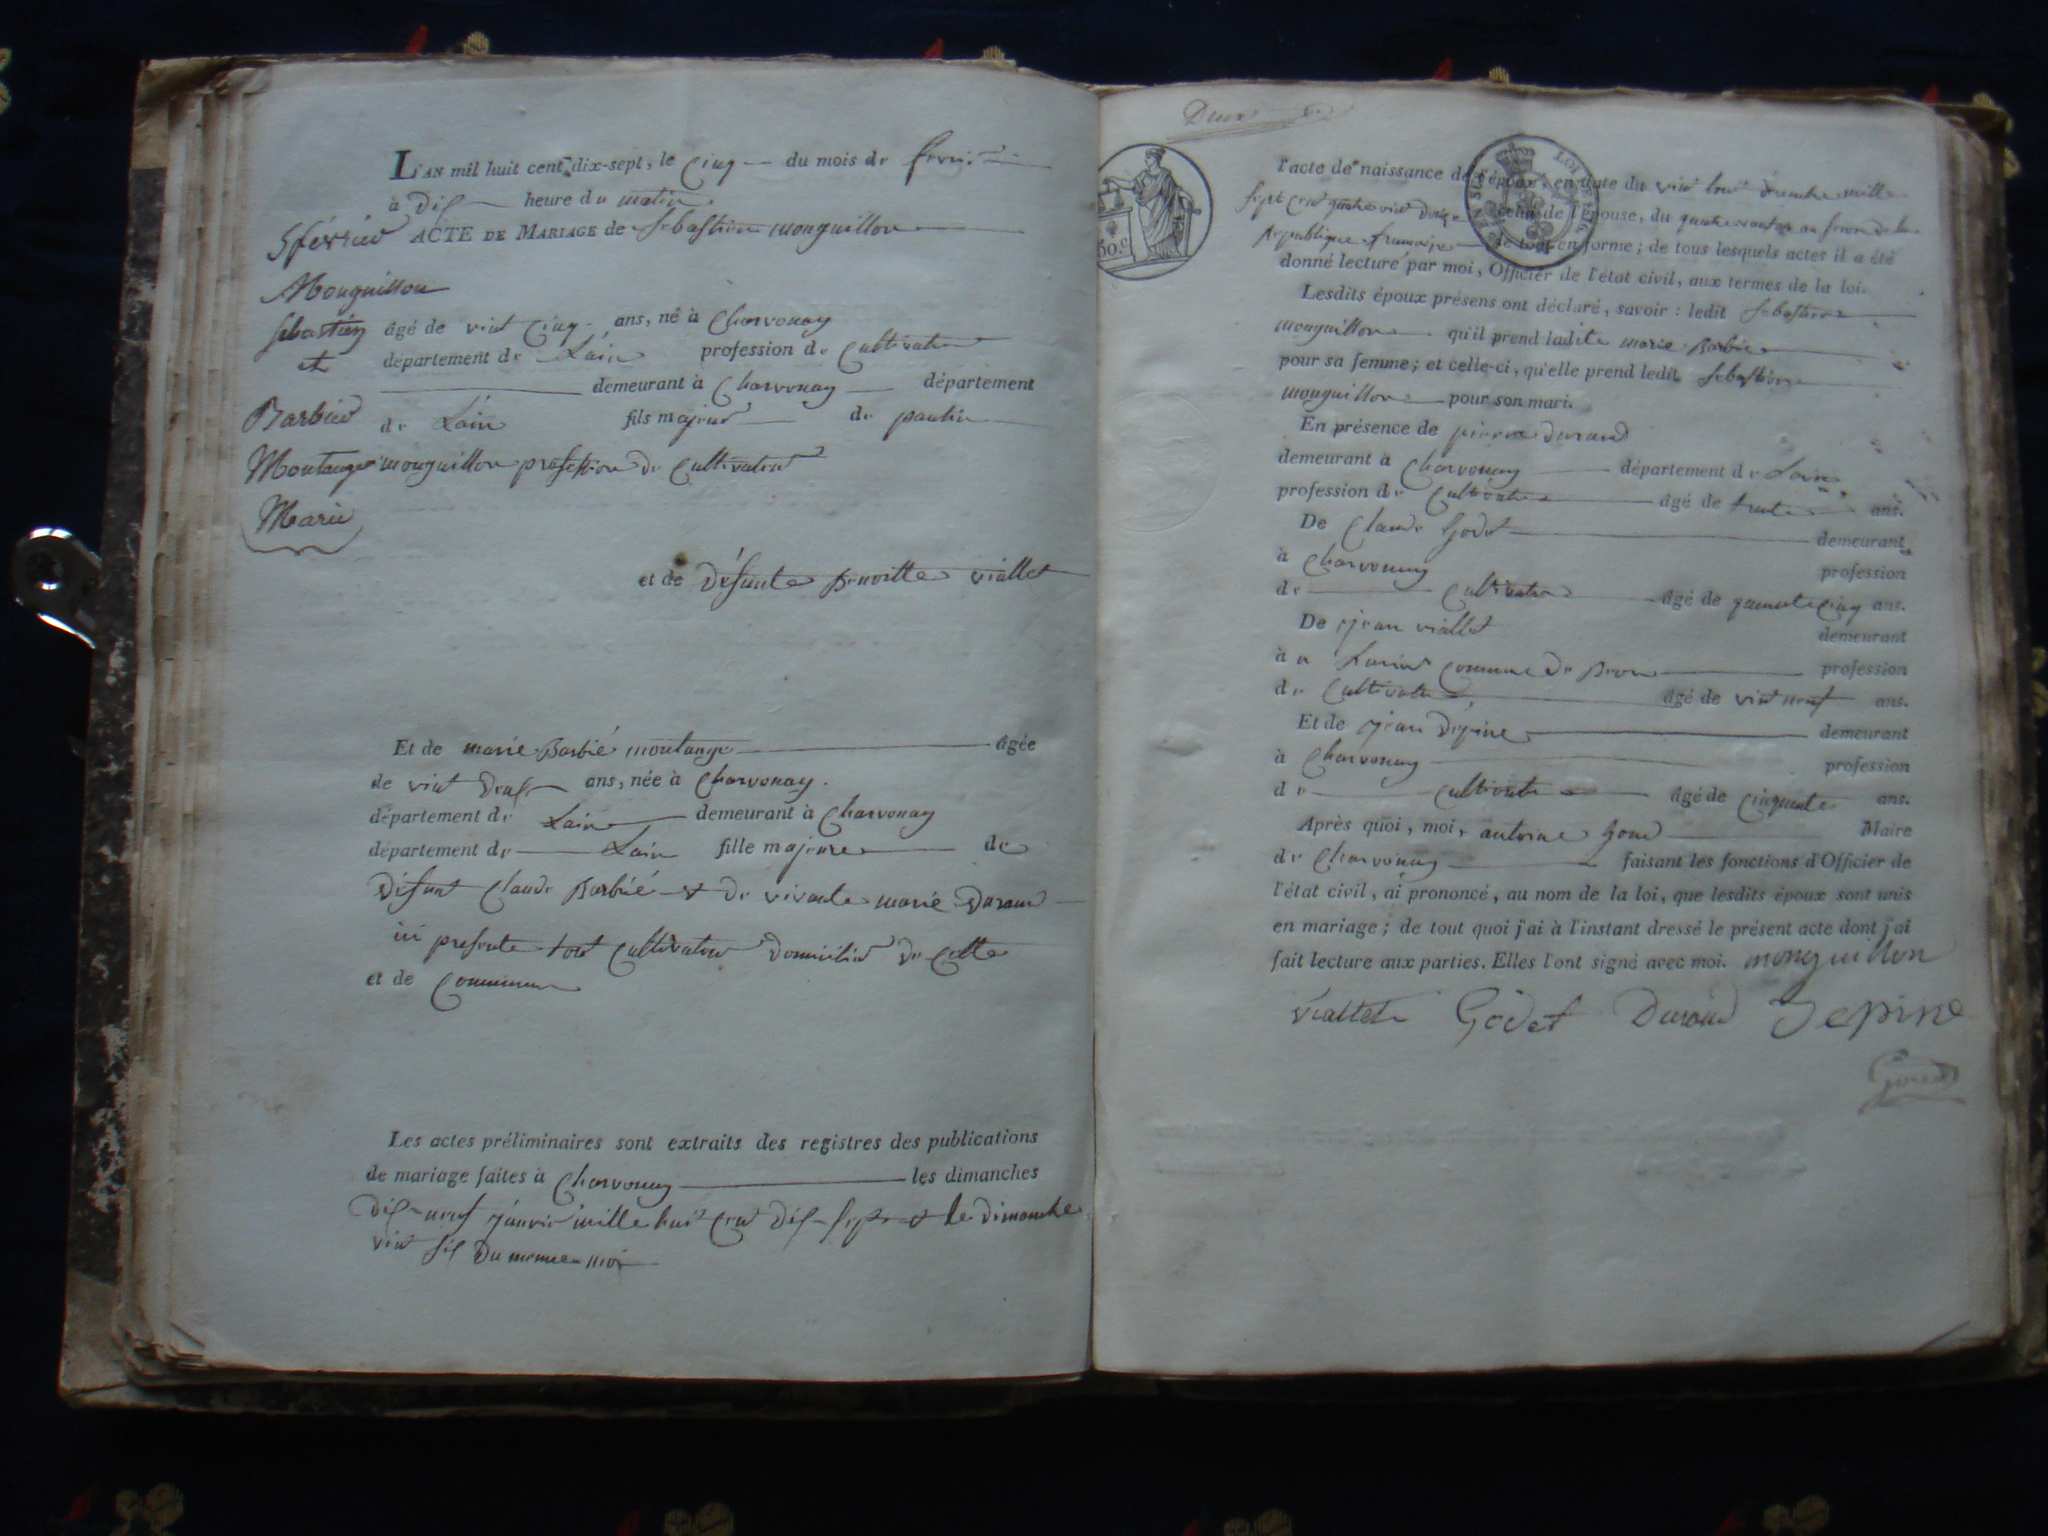 L'AN mil huit cent dix-sept, le cinq du mois de
à dix heure du matin
5 février
ACTE DE MARIAGE de Sebastien monguillon
Monguillon
Sebastien
et
Barbier
Montange
Marie
âgé de vint cinq ans, né à Charvonay
département de Lain profession de Cultivateur
demeurant à Charvonay département
de Lain fils majeur de
monguillon profession de Cultivateur
et de Defunte viallet
Et de marie Barbié montange âgée
de vint deux ans, née à Charvonay.
département de Lain demeurant à Charvonay
département de Lain fille majeure de
défunt Claude Barbié et de vivante marie Durand
ici presente tout cultivateur domicilié de cette
et de commune
Les actes préliminaires sont extraits des registres des publications
de mariage faites à Charvonay les dimanches
dix neuf janvier mille huit cent dix sept et le dimanche
vint six du meme moi
50.c
l'acte de naissance de l'époux, en date du mille
sept cent quatre vint celui de l'épouse, du quatre
Republique francaise le tout en forme; de tous lesquels actes il a été
donné lecture par moi, Officier de l'état civil, aux termes de la loi.
Lesdits époux présens ont déclaré, savoir : ledit Sebastien
monguillon qu'il prend ladite marie Barbie
pour sa femme; et celle-ci, qu'elle prend ledit Sebastien
monguillon pour son mari.
En présence de pierre durand
demeurant à Charvonay département de Lain
profession de Cultivateur âgé de trente ans.
De Claude Godet demeurant
à Charvonay profession
de cultivateur âgé de quarante cinq ans.
De jean viallet demeurant
à commune de profession
de Cultivateur âgé de vint neuf ans.
Et de jean dépine demeurant
à Charvonay profession
de cultivateur âgé de cinquante ans.
Après quoi, moi, antoine Maire
de Charvonay faisant les fonctions d'Officier de
l'état civil, ai prononcé, au nom de la loi, que lesdits époux sont unis
en mariage; de tout quoi j'ai à l'instant dressé le présent acte dont j'ai
fait lecture aux parties. Elles l'ont signé avec moi. monguillon
viallet Godet Durand Depine